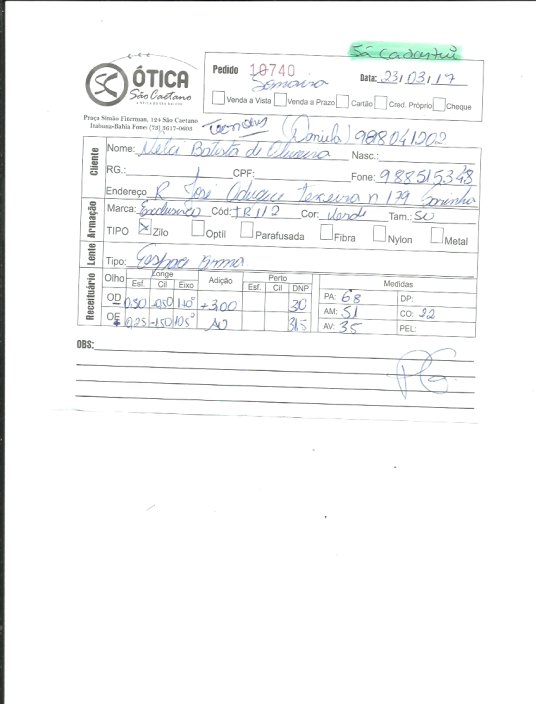 Já Cadastrei
ÓTICA
São Caetano
Praça Simão Fiterman, 124 São Caetano
Itabuna-Bahia Fone: (73) 3617-0603
Pedido 10740
Data: 23/03/17
Venda a Vista Venda a Prazo Cartão Cred. Próprio Cheque
988041202
Cliente
Nome: Batista de Oliveira Nasc.:
RG.: CPF: Fone: 988515348
Endereço R José Teixeira n 179
Armação
Marca: Exclusivo Cód: TR112 Cor: Verde Tam.: 50
TIPO X Zilo Optil Parafusada Fibra Nylon Metal
Lente
Tipo:
Receituário
Olho Longe Adição Perto Medidas
Esf. Cil Eixo Esf. Cil DNP
OD 0,50 -0,50 110° +3,00 30 PA: 68 DP:
OE 0,25 -1,50 105° 31,5 AM: 51 CO: 22
AV: 35 PEL:
OBS: